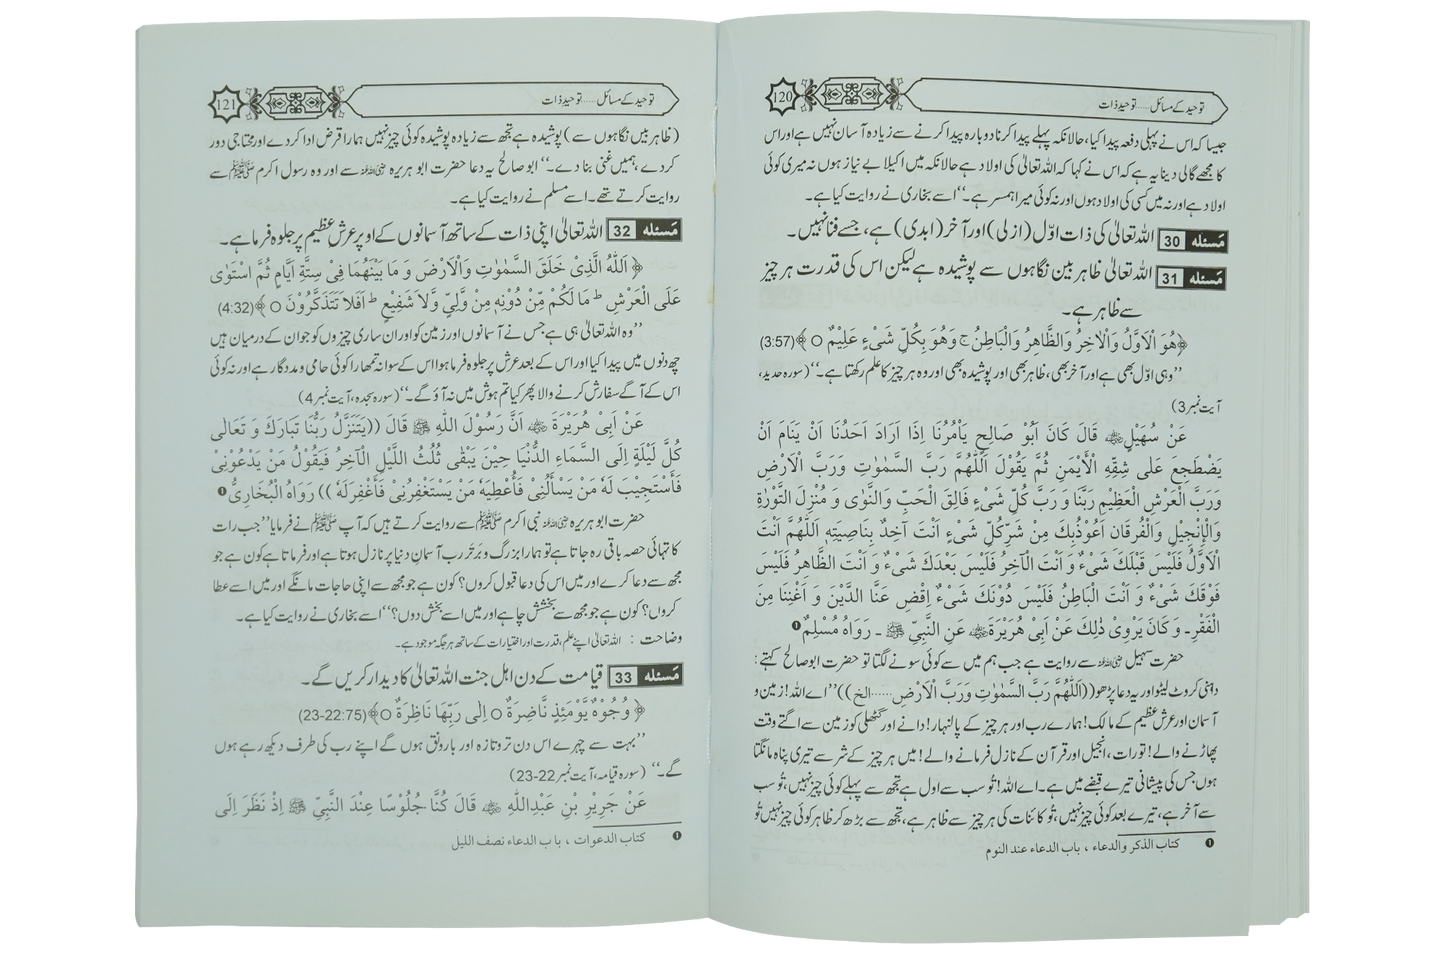 توحید کے مسائل.....توحید ذات
120
جیسا کہ اس نے پہلی دفعہ پیدا کیا، حالانکہ پہلے پیدا کرنا دوبارہ پیدا کرنے سے زیادہ آسان نہیں ہے اور اس
کا مجھے گالی دینا یہ ہے کہ اس نے کہا کہ اللہ تعالیٰ کی اولاد ہے حالانکہ میں اکیلا بے نیاز ہوں نہ میری کوئی
اولاد ہے اور نہ میں کسی کی اولاد ہوں اور نہ کوئی میرا ہمسر ہے۔‘‘ اسے بخاری نے روایت کیا ہے۔
مَسئلہ 30 اللہ تعالیٰ کی ذات اوّل (ازلی) اور آخر (ابدی) ہے، جسے فنا نہیں۔
مَسئلہ 31 اللہ تعالیٰ ظاہر بین نگاہوں سے پوشیدہ ہے لیکن اس کی قدرت ہر چیز
سے ظاہر ہے۔
﴿هُوَ الْاَوَّلُ وَالْاٰخِرُ وَالظَّاهِرُ وَالْبَاطِنُ ج وَهُوَ بِكُلِّ شَىْءٍ عَلِيْمٌ ○﴾(3:57)
’’وہی اوّل بھی ہے اور آخر بھی، ظاہر بھی اور پوشیدہ بھی اور وہ ہر چیز کا علم رکھتا ہے۔‘‘ (سورہ حدید،
آیت نمبر 3)
عَنْ سُهَيْلٍ ؓ قَالَ كَانَ اَبُوْ صَالِحٍ يَأْمُرُنَا اِذَا اَرَادَ اَحَدُنَا اَنْ يَنَامَ اَنْ
يَضْطَجِعَ عَلٰى شِقِّهِ الْأَيْمَنِ ثُمَّ يَقُوْلَ اَللّٰهُمَّ رَبَّ السَّمٰوٰتِ وَرَبَّ الْاَرْضِ
وَرَبَّ الْعَرْشِ الْعَظِيْمِ رَبَّنَا وَ رَبَّ كُلِّ شَىْءٍ فَالِقَ الْحَبِّ وَالنَّوٰى وَ مُنْزِلَ التَّوْرٰةِ
وَالْإِنْجِيْلِ وَالْفُرْقَانِ اَعُوْذُبِكَ مِنْ شَرِّ كُلِّ شَىْءٍ اَنْتَ آخِذٌ بِنَاصِيَتِهِ اَللّٰهُمَّ اَنْتَ
الْاَوَّلُ فَلَيْسَ قَبْلَكَ شَىْءٌ وَ اَنْتَ الْآخِرُ فَلَيْسَ بَعْدَكَ شَىْءٌ وَ اَنْتَ الظَّاهِرُ فَلَيْسَ
فَوْقَكَ شَىْءٌ وَ اَنْتَ الْبَاطِنُ فَلَيْسَ دُوْنَكَ شَىْءٌ اِقْضِ عَنَّا الدَّيْنَ وَ اَغْنِنَا مِنَ
الْفَقْرِ۔ وَ كَانَ يَرْوِىْ ذٰلِكَ عَنْ اَبِىْ هُرَيْرَةَ ؓ عَنِ النَّبِيِّ ﷺ ۔ رَوَاهُ مُسْلِمٌ ❶
حضرت سہیل ؓ سے روایت ہے جب ہم میں سے کوئی سونے لگتا تو حضرت ابو صالح کہتے :
داہنی کروٹ لیٹو اور یہ دعا پڑھو ((اَللّٰهُمَّ رَبَّ السَّمٰوٰتِ وَرَبَّ الْاَرْضِ......الخ)) ’’اے اللہ! زمین و
آسمان اور عرش عظیم کے مالک! ہمارے رب اور ہر چیز کے پالنہار! دانے اور گٹھلی کو زمین سے اگتے وقت
پھاڑنے والے! تورات، انجیل اور قرآن کے نازل فرمانے والے! میں ہر چیز کے شر سے تیری پناہ مانگتا
ہوں جس کی پیشانی تیرے قبضے میں ہے۔ اے اللہ! تُو سب سے اول ہے تجھ سے پہلے کوئی چیز نہیں، تُو سب
سے آخر ہے، تیرے بعد کوئی چیز نہیں، تُو کائنات کی ہر چیز سے ظاہر ہے، تجھ سے بڑھ کر ظاہر کوئی چیز نہیں تُو
❶ کتاب الذکر والدعاء ، باب الدعاء عند النوم
توحید کے مسائل.....توحید ذات
121
(ظاہر بیں نگاہوں سے) پوشیدہ ہے تجھ سے زیادہ پوشیدہ کوئی چیز نہیں ہمارا قرض ادا کر دے اور محتاجی دور
کر دے، ہمیں غنی بنا دے۔‘‘ ابو صالح یہ دعا حضرت ابو ہریرہ ؓ سے اور وہ رسول اکرم ﷺ سے
روایت کرتے تھے۔ اسے مسلم نے روایت کیا ہے۔
مَسئلہ 32 اللہ تعالیٰ اپنی ذات کے ساتھ آسمانوں کے اوپر عرش عظیم پر جلوہ فرما ہے۔
﴿اَللّٰهُ الَّذِىْ خَلَقَ السَّمٰوٰتِ وَالْاَرْضَ وَ مَا بَيْنَهُمَا فِىْ سِتَّةِ اَيَّامٍ ثُمَّ اسْتَوٰى
عَلَى الْعَرْشِ ط مَا لَكُمْ مِّنْ دُوْنِهٖ مِنْ وَّلِيٍّ وَّلَا شَفِيْعٍ ط اَفَلَا تَتَذَكَّرُوْنَ ○﴾(4:32)
’’وہ اللہ تعالیٰ ہی ہے جس نے آسمانوں اور زمین کو اور ان ساری چیزوں کو جو ان کے درمیان ہیں
چھ دنوں میں پیدا کیا اور اس کے بعد عرش پر جلوہ فرما ہوا اس کے سوا نہ تمھارا کوئی حامی و مددگار ہے اور نہ کوئی
اس کے آگے سفارش کرنے والا پھر کیا تم ہوش میں نہ آؤ گے۔‘‘ (سورہ سجدہ، آیت نمبر 4)
عَنْ اَبِىْ هُرَيْرَةَ ؓ اَنَّ رَسُوْلَ اللّٰهِ ﷺ قَالَ ((يَتَنَزَّلُ رَبُّنَا تَبَارَكَ وَ تَعَالٰى
كُلَّ لَيْلَةٍ اِلَى السَّمَاءِ الدُّنْيَا حِيْنَ يَبْقٰى ثُلُثُ اللَّيْلِ الْآخِرُ فَيَقُوْلُ مَنْ يَدْعُوْنِىْ
فَأَسْتَجِيْبَ لَهُ مَنْ يَسْأَلُنِىْ فَأُعْطِيَهُ مَنْ يَسْتَغْفِرُنِىْ فَأَغْفِرَلَهُ)) رَوَاهُ الْبُخَارِىُّ ❶
حضرت ابو ہریرہ ؓ نبی اکرم ﷺ سے روایت کرتے ہیں کہ آپ ﷺ نے فرمایا ’’جب رات
کا تہائی حصہ باقی رہ جاتا ہے تو ہمارا بزرگ و برتر رب آسمانِ دنیا پر نازل ہوتا ہے اور فرماتا ہے کون ہے جو
مجھ سے دعا کرے اور میں اس کی دعا قبول کروں؟ کون ہے جو مجھ سے اپنی حاجات مانگے اور میں اسے عطا
کروں؟ کون ہے جو مجھ سے بخشش چاہے اور میں اسے بخش دوں؟‘‘ اسے بخاری نے روایت کیا ہے۔
وضاحت : اللہ تعالیٰ اپنے علم، قدرت اور اختیارات کے ساتھ ہر جگہ موجود ہے۔
مَسئلہ 33 قیامت کے دن اہل جنت اللہ تعالیٰ کا دیدار کریں گے۔
﴿وُجُوْهٌ يَّوْمَئِذٍ نَّاضِرَةٌ ○ اِلٰى رَبِّهَا نَاظِرَةٌ ○﴾(23-22:75)
’’بہت سے چہرے اس دن تروتازہ اور بارونق ہوں گے اپنے رب کی طرف دیکھ رہے ہوں
گے۔‘‘ (سورہ قیامہ، آیت نمبر 22-23)
عَنْ جَرِيْرِ بْنِ عَبْدِاللّٰهِ ؓ قَالَ كُنَّا جُلُوْسًا عِنْدَ النَّبِيِّ ﷺ اِذْ نَظَرَ اِلَى
❶ کتاب الدعوات ، باب الدعاء نصف اللیل